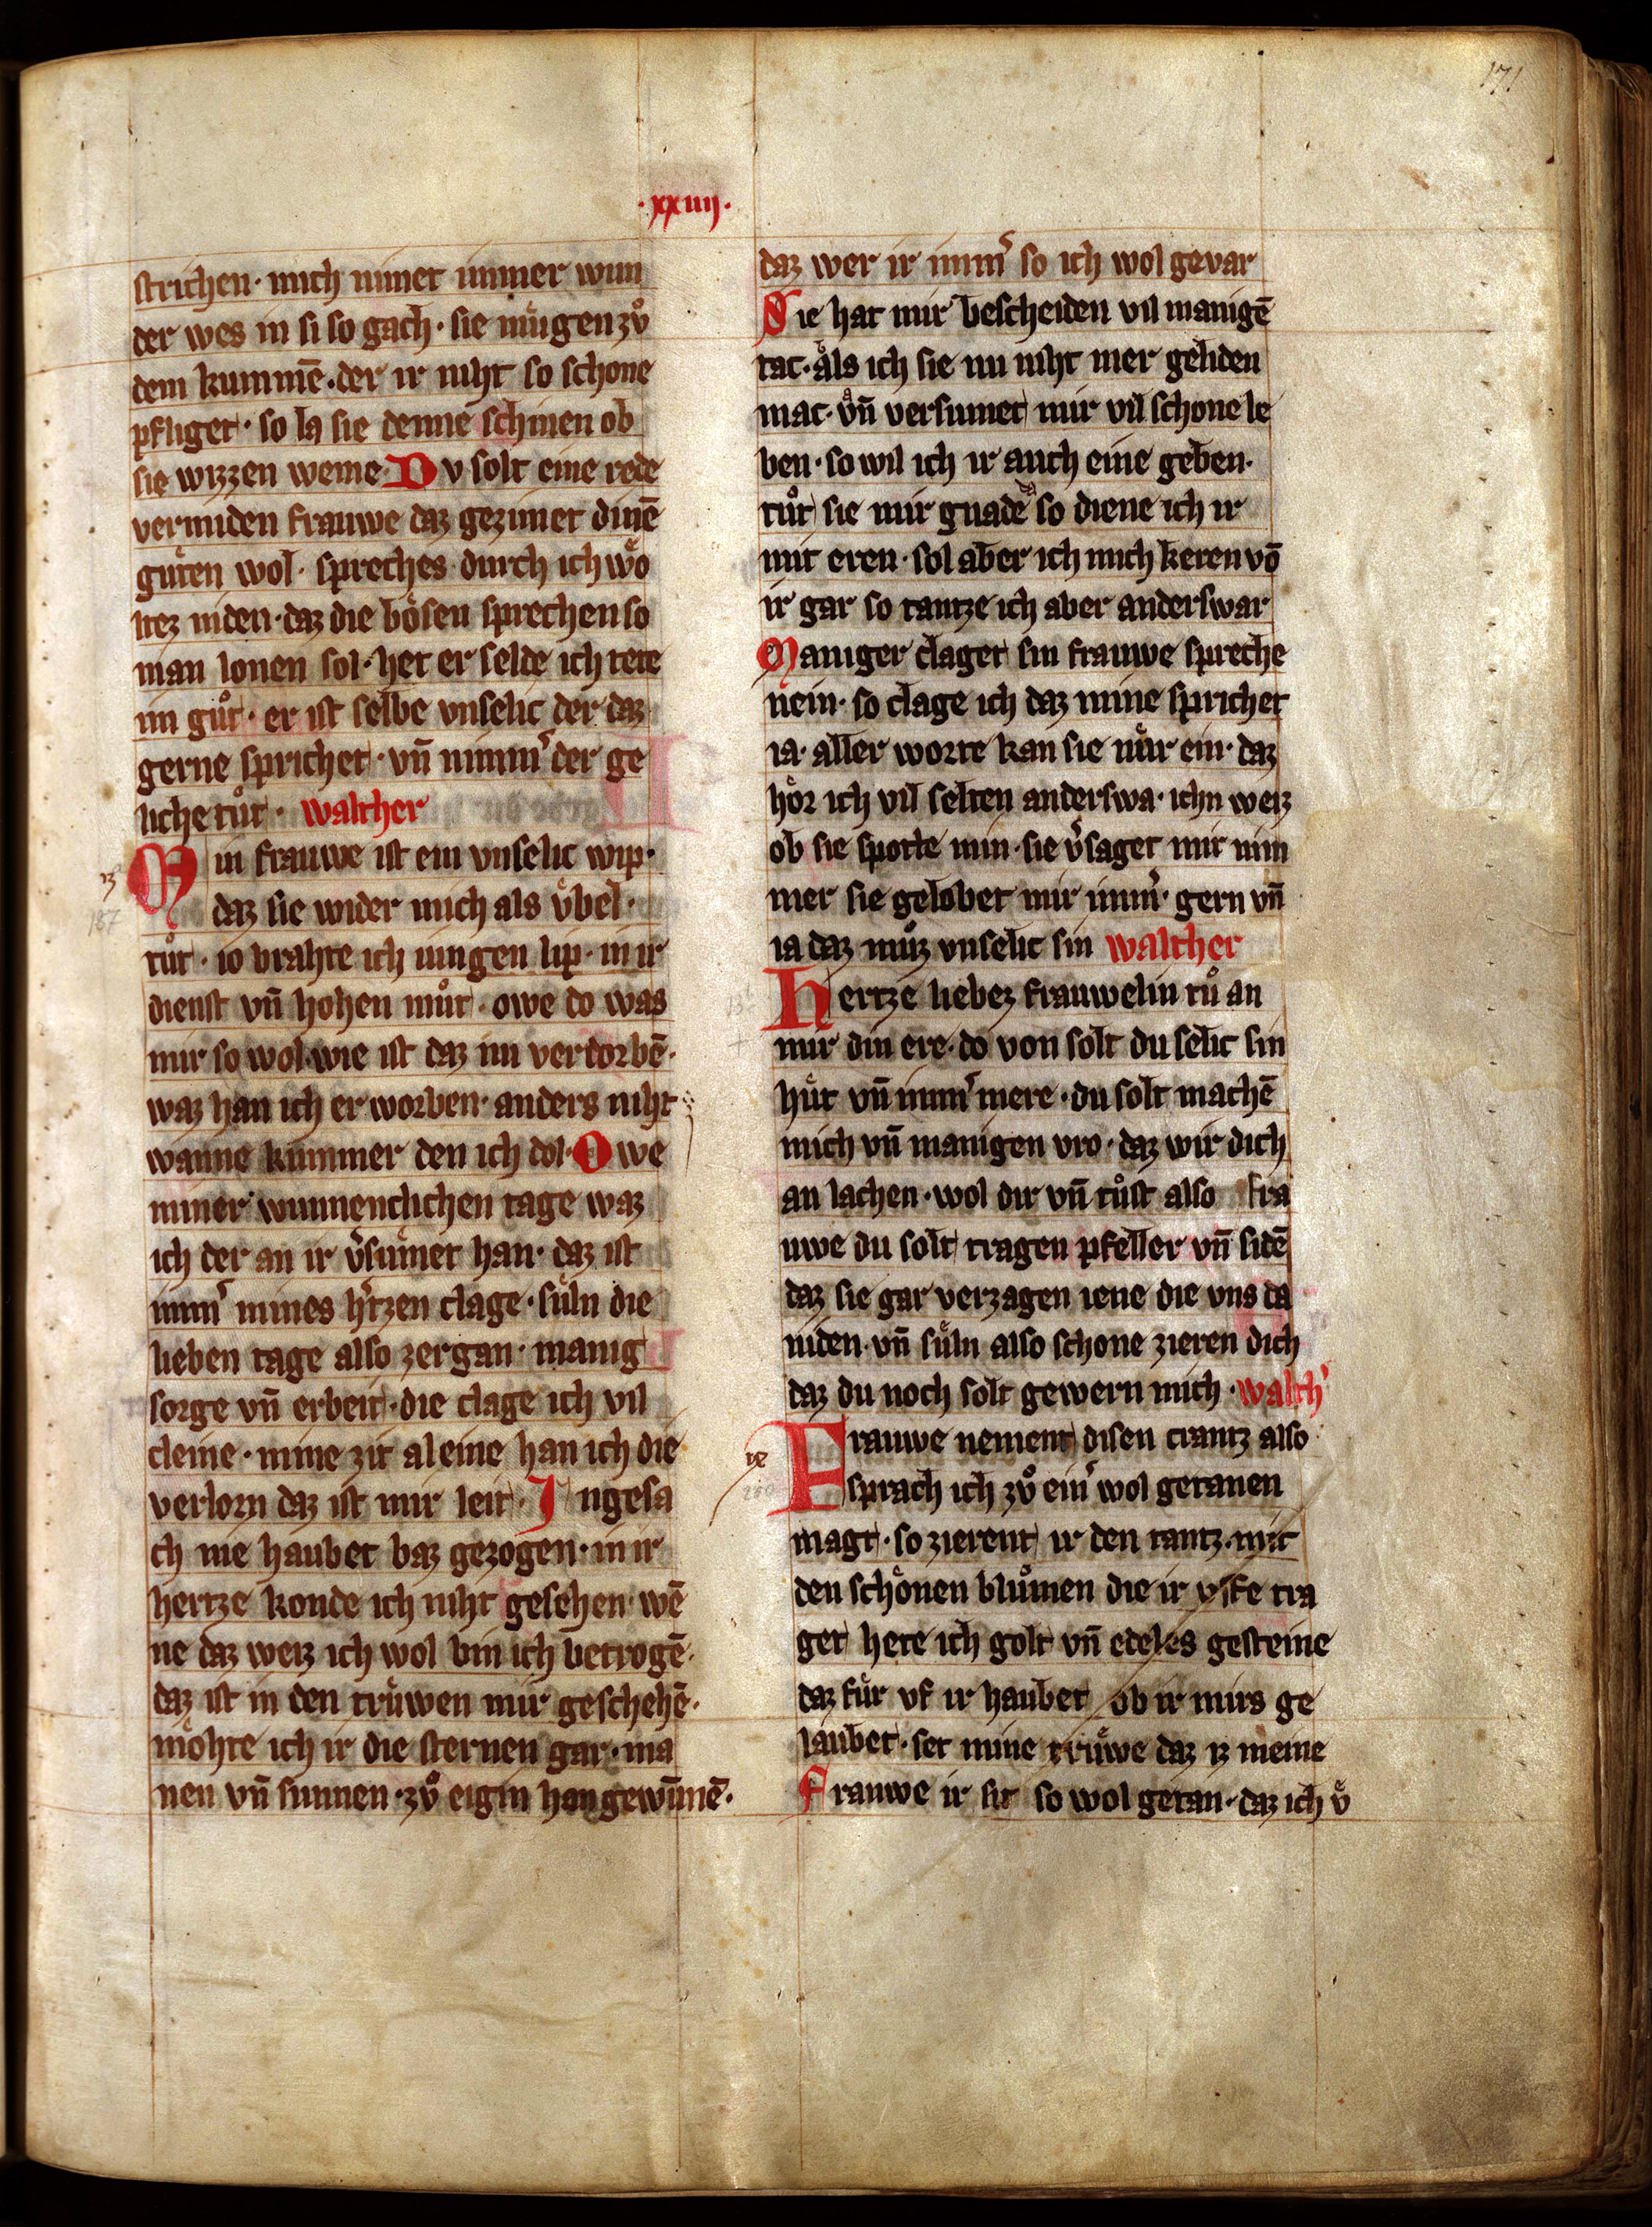 171
·xxiiii·
strichen· mich nimet immer wun
der wes in si so gach· sie mugen zuͦ
dem kummē· der ir niht so schone
pfliget· so la sie denne schinen ob
sie wizzen weme· Dv solt eine rede
vermiden frauwe daz gezimet dinē
guͤten wol· spreches durch ich wo
ltez niden· daz die boͤsen sprechen so
man lonen sol· het er selde ich tete
im guͦt· er ist selbe vnselic der daz
gerne sprichet· vn̄ nimm̾ der ge
liche tuͦt· walther
Min frauwe ist ein vnselic wip·
daz sie wider mich als vͤbel·
tuͦt· io brahte ich iungen lip· in ir
dienst vn̄ hohen muͦt· owe do was
mir so wol· wie ist daz nu verdorbē·
waz han ich erworben· anders niht
wanne kummer den ich dol· Owe
miner wunnenclichen tage waz
ich der an ir v̾sumet han· daz ist
imm̾ mines h̾tzen clage· suͤln die
lieben tage also zergan· manig
sorge vn̄ erbeit· die clage ich vil
cleine· mine zit aleine han ich die
verlorn daz ist mir leit· Ingesa
ch nie haubet baz gezogen· in ir
hertze konde ich niht gesehen· wē
ne daz weiz ich wol bin ich betrogē·
daz ist in den truͤwen mir geschehē·
moͤhte ich ir die sternen gar· ma
nen vn̄ sunnen· zuͦ eigin han gewūnē·
daz wer ir imm̾ so ich wol gevar
Sie hat mir bescheiden vil manigē
tac· als ich sie nu niht mer geliden
mac· vn̄ versumet mir vil schone le
ben· so wil ich ir auch eine geben·
tuͦt sie mir gnade so diene ich ir
mit eren· sol aber ich mich keren vō
ir gar so tantze ich aber anderswar
Maniger claget sin frauwe spreche
nein· so clage ich daz mine sprichet
ia· aller worte kan sie nuͤr ein· daz
hoͤr ich vil selten anderswa· ichn weiz
ob sie spotte min· sie v̾saget mir nim
mer sie gelobet mir imm̾· gern vn̄
ia daz muͦz vnselic sin walther
Hertze liebez frauwelin tuͦ an
mir din ere· do von solt du selic sin
huͤt vn̄ imm̾ mere· du solt machē
mich vn̄ manigen vro· daz wir dich
an lachen· wol dir vn̄ tuͦst also fra
uwe du solt tragen pfeller vn̄ sidē
daz sie gar verzagen iene die vns da
niden· vn̄ suͤln also schone zieren dich
daz du noch solt gewern mich· walth̾
Frauwe nement disen crantz also
sprach ich zuͦ ein̾ wol getanen
magt· so zierent ir den tantz· mit
den schoͤnen bluͦmen die ir vffe tra
get hete ich golt vn̄ edeles gesteine
daz fuͤr vf ir haubet ob ir mirs ge
laubet· set mine truͤwe daz iz meine
Frauwe ir sit so wol getan· daz ich vͤ